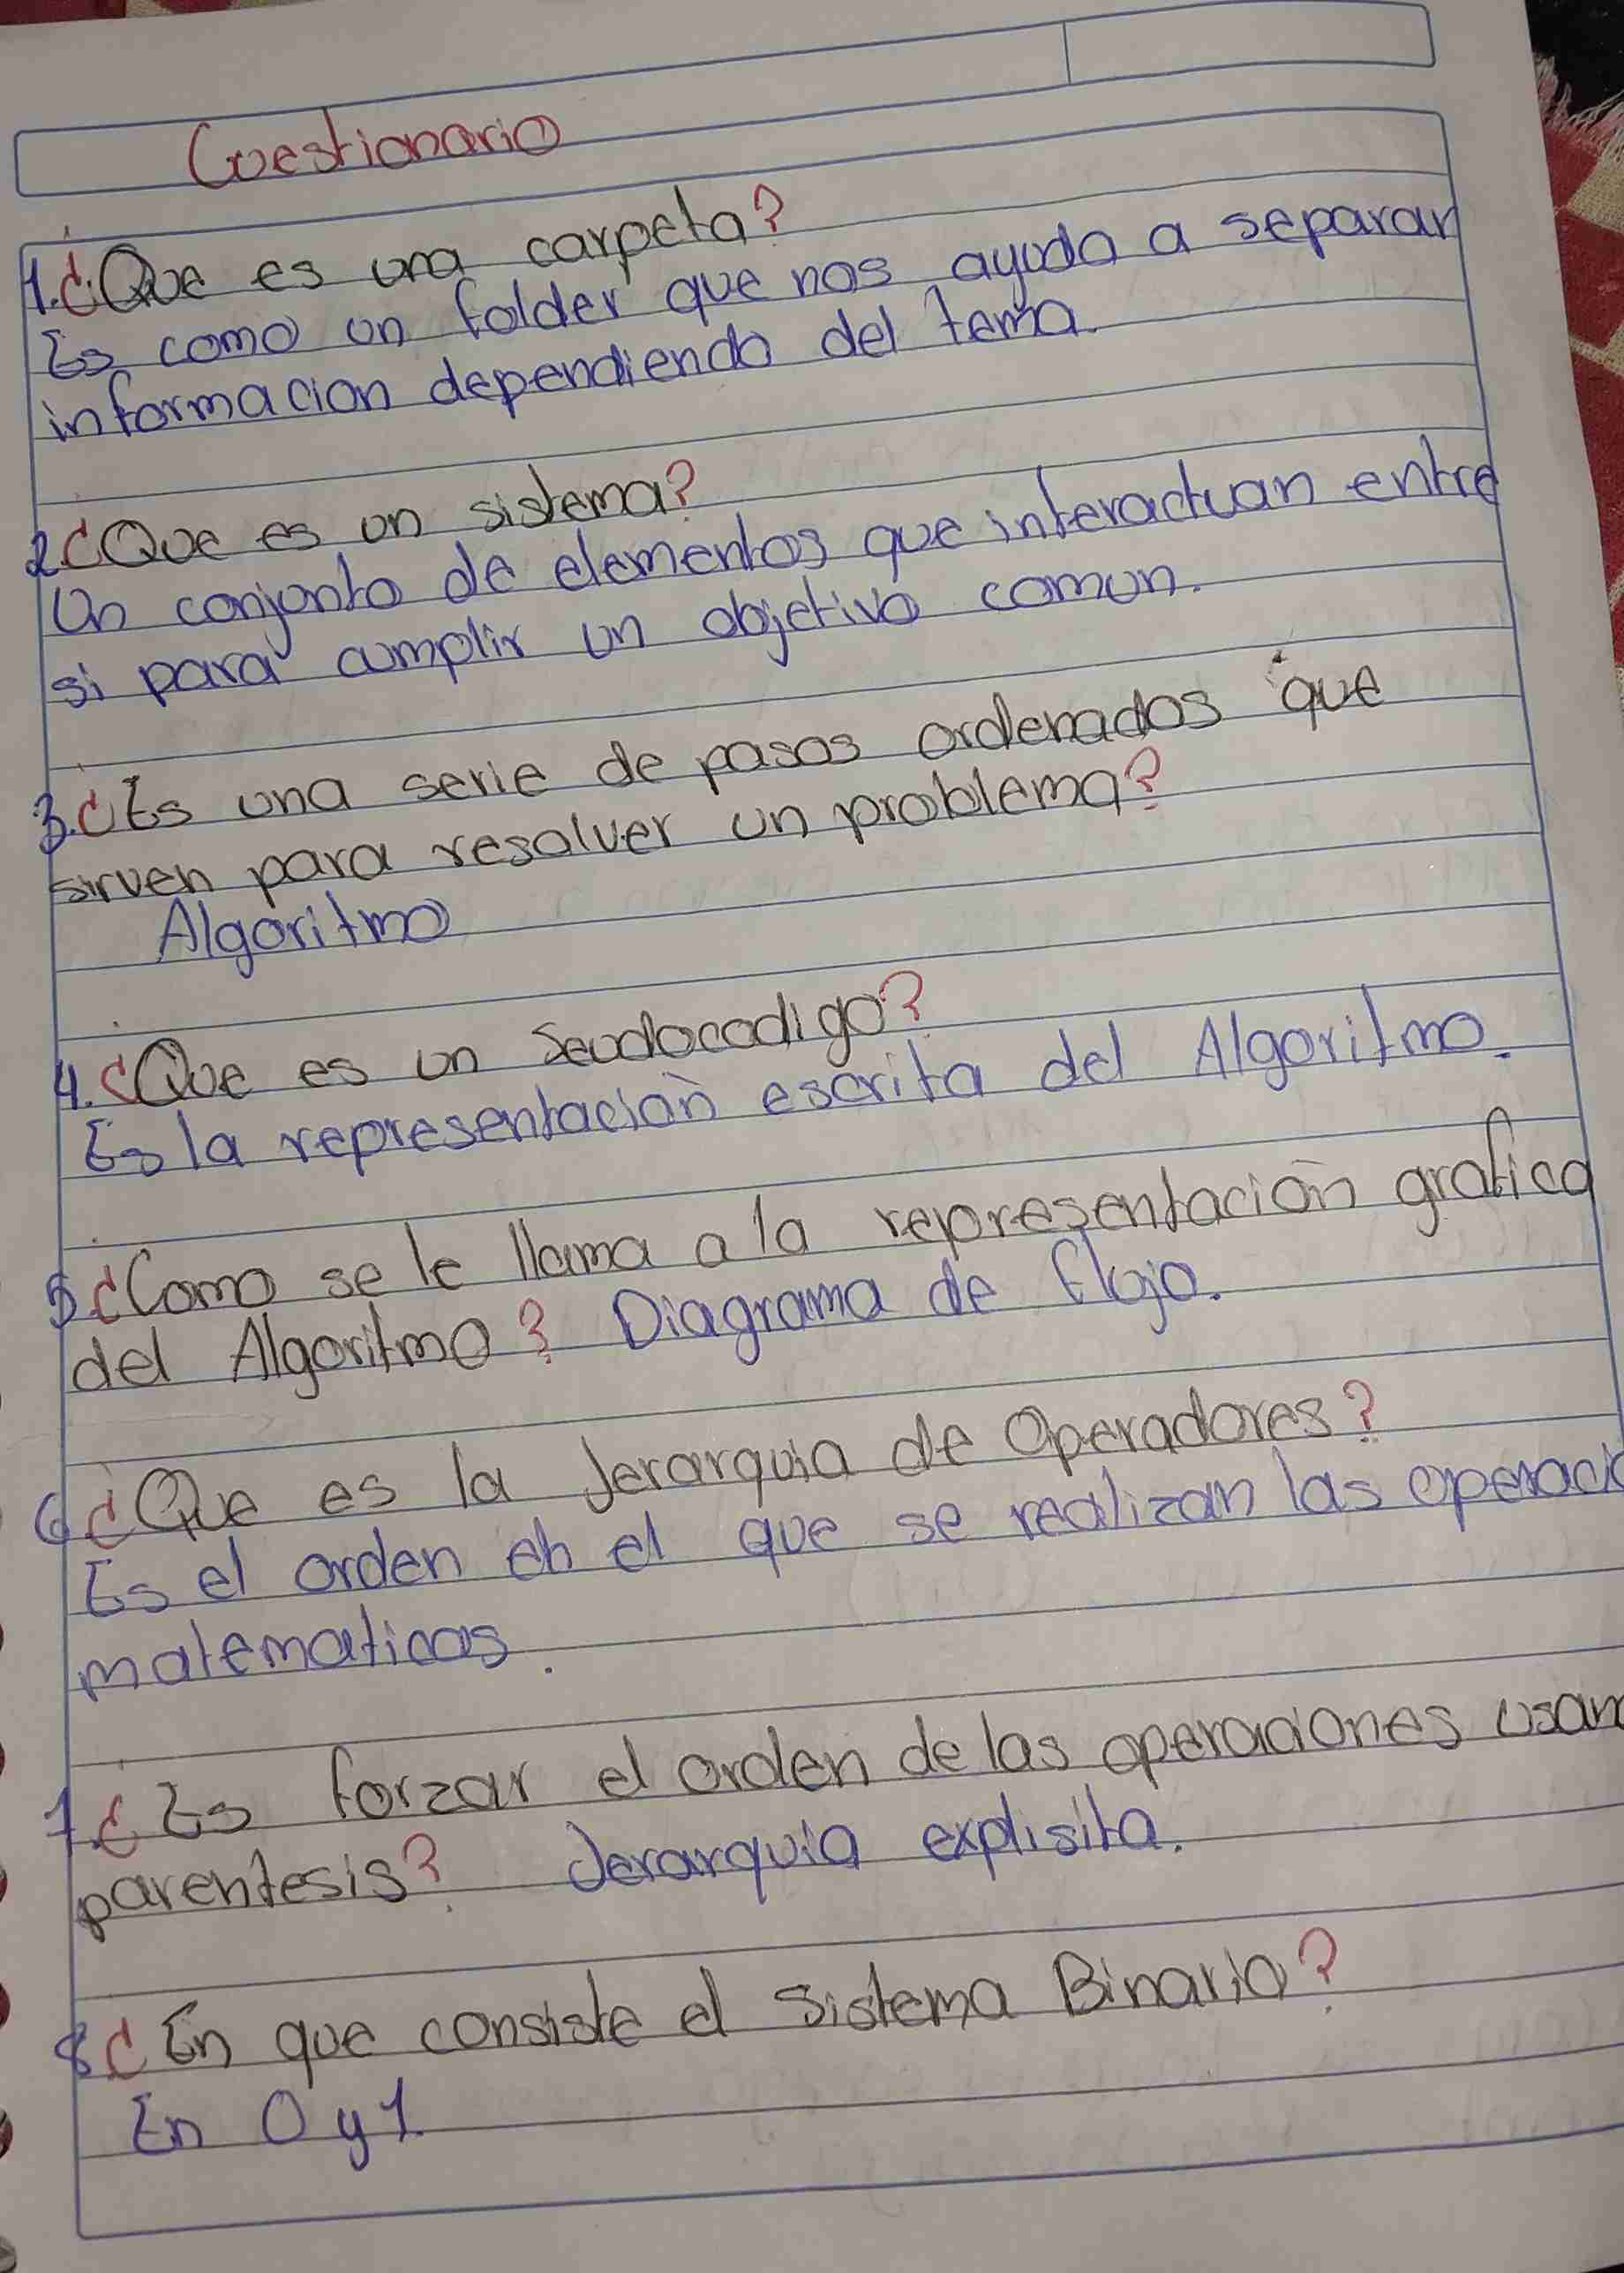 Cuestionario
1. ¿Que es una carpeta?
Es como un folder que nos ayuda a separar
informacion dependiendo del tema.
2 ¿Que es un sistema?
Un conjunto de elementos que interactuan entre
si para cumplir un objetivo comun.
3. ¿Es una serie de pasos ordenados que
sirven para resolver un problema?
Algoritmo
4. ¿Que es un Seudocodigo?
Es la representación escrita del Algoritmo.
5. ¿Como se le llama a la representación grafica
del Algoritmo? Diagrama de flujo.
6 ¿Que es la Jerarquia de Operadores?
Es el orden en el que se realizan las operacio
matematicas.
7. ¿Es forzar el orden de las operaciones usan
parentesis? Jerarquia explisita.
8 ¿En que consiste el Sistema Binario?
En 0 y 1